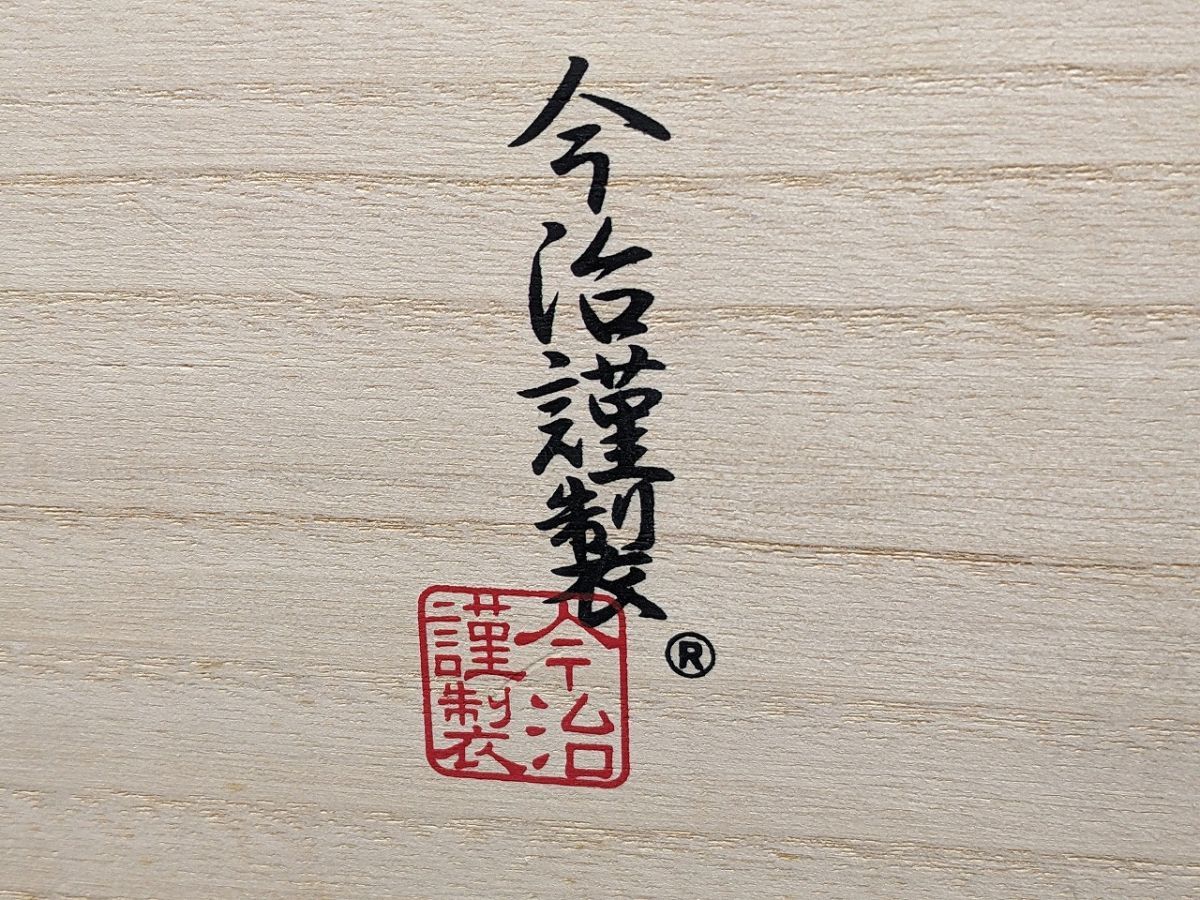 今治謹製
®
今治
謹製